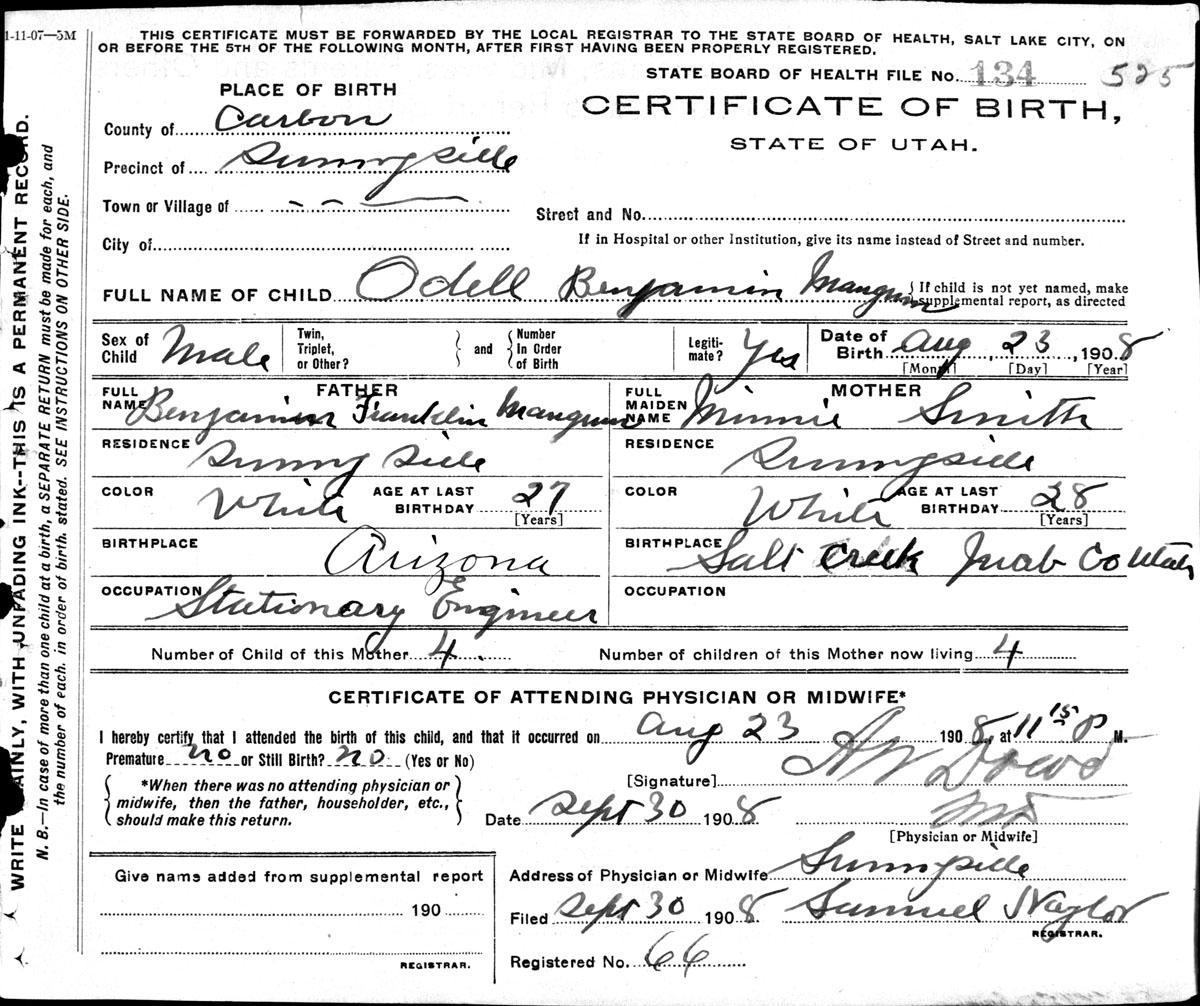 1-11-07—5M
THIS CERTIFICATE MUST BE FORWARDED BY THE LOCAL REGISTRAR TO THE STATE BOARD OF HEALTH, SALT LAKE CITY, ON
OR BEFORE THE 5TH OF THE FOLLOWING MONTH, AFTER FIRST HAVING BEEN PROPERLY REGISTERED.
STATE BOARD OF HEALTH FILE No. 134 525
PLACE OF BIRTH
CERTIFICATE OF BIRTH,
STATE OF UTAH.
County of Carbon
Precinct of Sunnyside
Town or Village of
Street and No.
City of
If in Hospital or other Institution, give its name instead of Street and number.
FULL NAME OF CHILD Odell Benjamin Mangum
If child is not yet named, make
supplemental report, as directed
Sex of Child Male
Twin, Triplet, or Other?
and
Number In Order of Birth
Legiti- mate? Yes
Date of Birth Aug, 23, 1908
[Month] [Day] [Year]
FATHER
FULL NAME Benjamin Franklin Mangum
RESIDENCE Sunny Side
COLOR White AGE AT LAST BIRTHDAY 27
[Years]
BIRTHPLACE Arizona
OCCUPATION Stationary Engineer
MOTHER
FULL MAIDEN NAME Minnie Smith
RESIDENCE Sunnyside
COLOR White AGE AT LAST BIRTHDAY 28
[Years]
BIRTHPLACE Salt Creek Juab Co Utah
OCCUPATION
Number of Child of this Mother 4 Number of children of this Mother now living 4
CERTIFICATE OF ATTENDING PHYSICIAN OR MIDWIFE*
I hereby certify that I attended the birth of this child, and that it occurred on Aug 23 1908, at 11 15 P M.
Premature no or Still Birth? no (Yes or No)
*When there was no attending physician or
midwife, then the father, householder, etc.,
should make this return.
[Signature]
Date Sept 30 1908
[Physician or Midwife]
Address of Physician or Midwife Sunnyside
Filed Sept 30 1908 Samuel Naylor
REGISTRAR.
Registered No. 66
Give name added from supplemental report
190
REGISTRAR.
WRITE PLAINLY, WITH UNFADING INK--THIS IS A PERMANENT RECORD.
N. B.—In case of more than one child at a birth, a SEPARATE RETURN must be made for each, and
the number of each. in order of birth. stated. SEE INSTRUCTIONS ON OTHER SIDE.